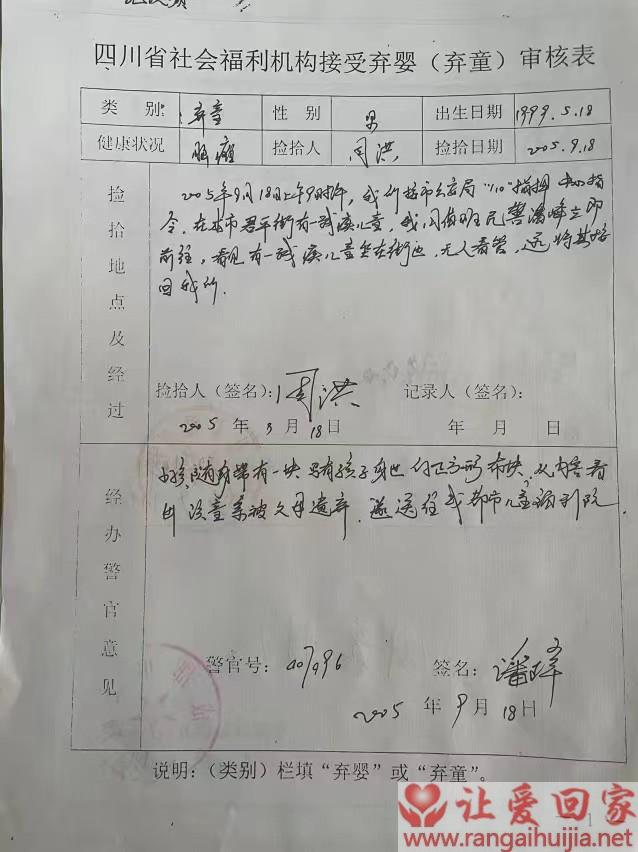 四川省社会福利机构接受弃婴（弃童）审核表
类 别: 弃童 性 别 男 出生日期 1999.5.18
健康状况 脑瘫 捡拾人 周洪 捡拾日期 2005.9.18
捡拾地点及经过
2005年9月18日上午9时许，我所接市公安局"110"指挥中心指
令，在本市君平街有一残疾儿童，我
前往，看见有一残疾儿童坐在街边，无人看管，遂将其接
回我所.
捡拾人（签名）： 周洪 记录人（签名）：
2005 年 9 月 18 日 年 月 日
经办警官意见
有一块 布块，从内容看
出 该童系被父母遗弃. 遂送往成都市儿童福利院.
警官号: 签名:
2005 年 9 月 18 日
说明:（类别）栏填“弃婴”或“弃童”。
让爱回家
www.rangaihuijia.net